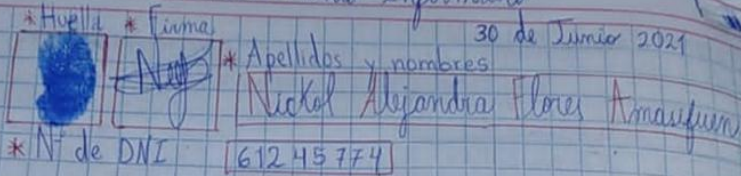 * Huella * Firma
30 de Junio 2021
* Apellidos y nombres
Nickol Alejandra Flores Amasifuen
* N° de DNI 61245774